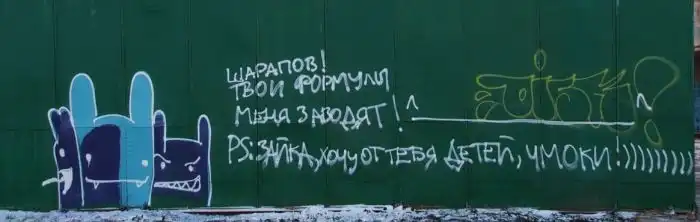 ШАРАПОВ!
ТВОИ ФОРМУЛЫ
МЕНЯ ЗАВОДЯТ!
PS: ЗАЙКА, ХОЧУ ОТ ТЕБЯ ДЕТЕЙ, ЧМОКИ!)))))))))